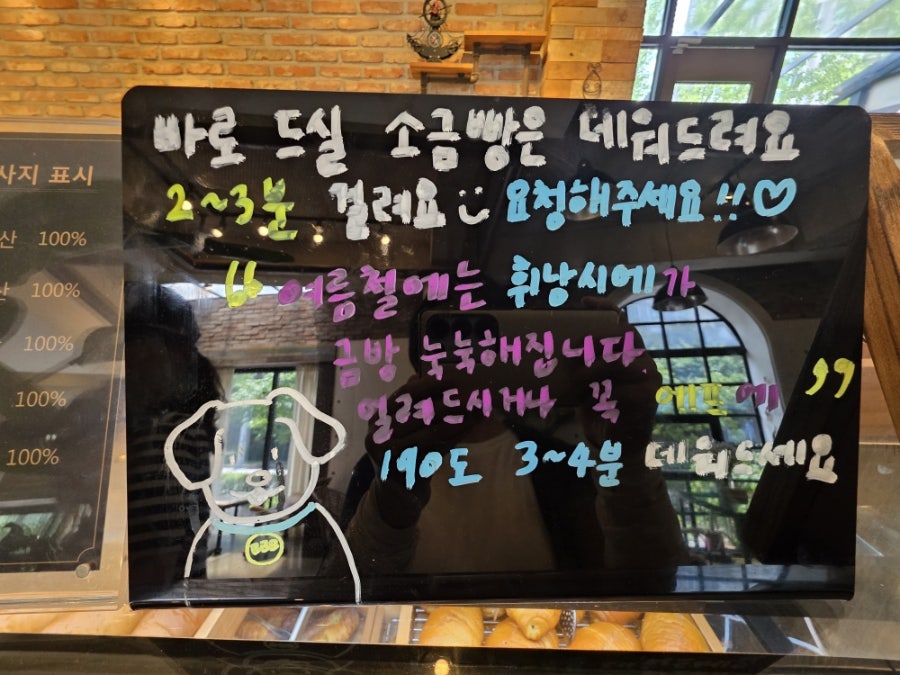 바로 드실 소금빵은 데워드려요
2~3분 걸려요 요청해주세요!! ♡
“ 여름철에는 휘낭시에가
금방 눅눅해집니다.
얼려드시거나 꼭 에프에 ”
190도 3~4분 데워드세요
BBB
사지 표시
산 100%
산 100%
100%
100%
100%